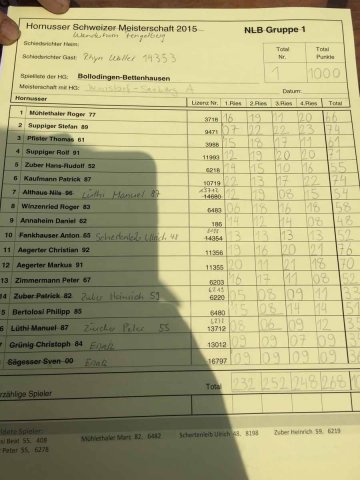 Hornusser Schweizer Meisterschaft 2015 NLB Gruppe 1
Wanderhorn
Schiedsrichter Heim: Total Nr. Total Punkte
Schiedsrichter Gast: Walter 14353 1 1000
Spielliste der HG: Bolllodingen-Bettenhausen
Meisterschaft mit HG: A Datum:
Hornusser Lizenz Nr. 1.Ries 2.Ries 3.Ries 4.Ries Total
1 Mühlethaler Roger 77 3718 16 19 21 20
2 Suppiger Stefan 89 9471 07 22 22 23 74
3 Pfister Thomas 61 3988 15 18 17 11 61
4 Suppiger Rolf 91 11993 12 19 20 20 71
5 Zuber Hans-Rudolf 52 6218 14 15 10 16 55
6 Kaufmann Patrick 87 10719 22 13 17 22 74
7 Althaus Nils 96 Lüthi Manuel 87 14680 12 19 08 15 54
8 Winzenried Roger 83 6483 06 18 16 18 58
9 Annaheim Daniel 62 186 12 14 08 48
10 Fankhauser Anton 65 Schertenleib Ulrich 48 14354 13 13 13 13 52
11 Aegerter Christian 92 11356 13 16 20 76
12 Aegerter Markus 91 11355 21 18 70
13 Zimmermann Peter 67 6203 16 17 11 08 52
14 Zuber Patrick 82 Zuber Heinrich 59 6220 05 08 09 11 33
5 Bertolosi Philipp 85 6480 15 08 14 14
6 Lüthi Manuel 87 Zürcher Peter 55 13712 18 06 09 12
7 Grünig Christoph 84 Ersatz 13012 09 09 07 09
Sägesser Sven 00 Ersatz 16797 09 09 09 09
Total 232 252 248 268
erzählige Spieler
ldete Spieler:
si Beat 55, 408 Mühlethaler Marc 82, 6482 Schertenleib Ulrich 48, 8198 Zuber Heinrich 59, 6219
r Peter 55, 6278